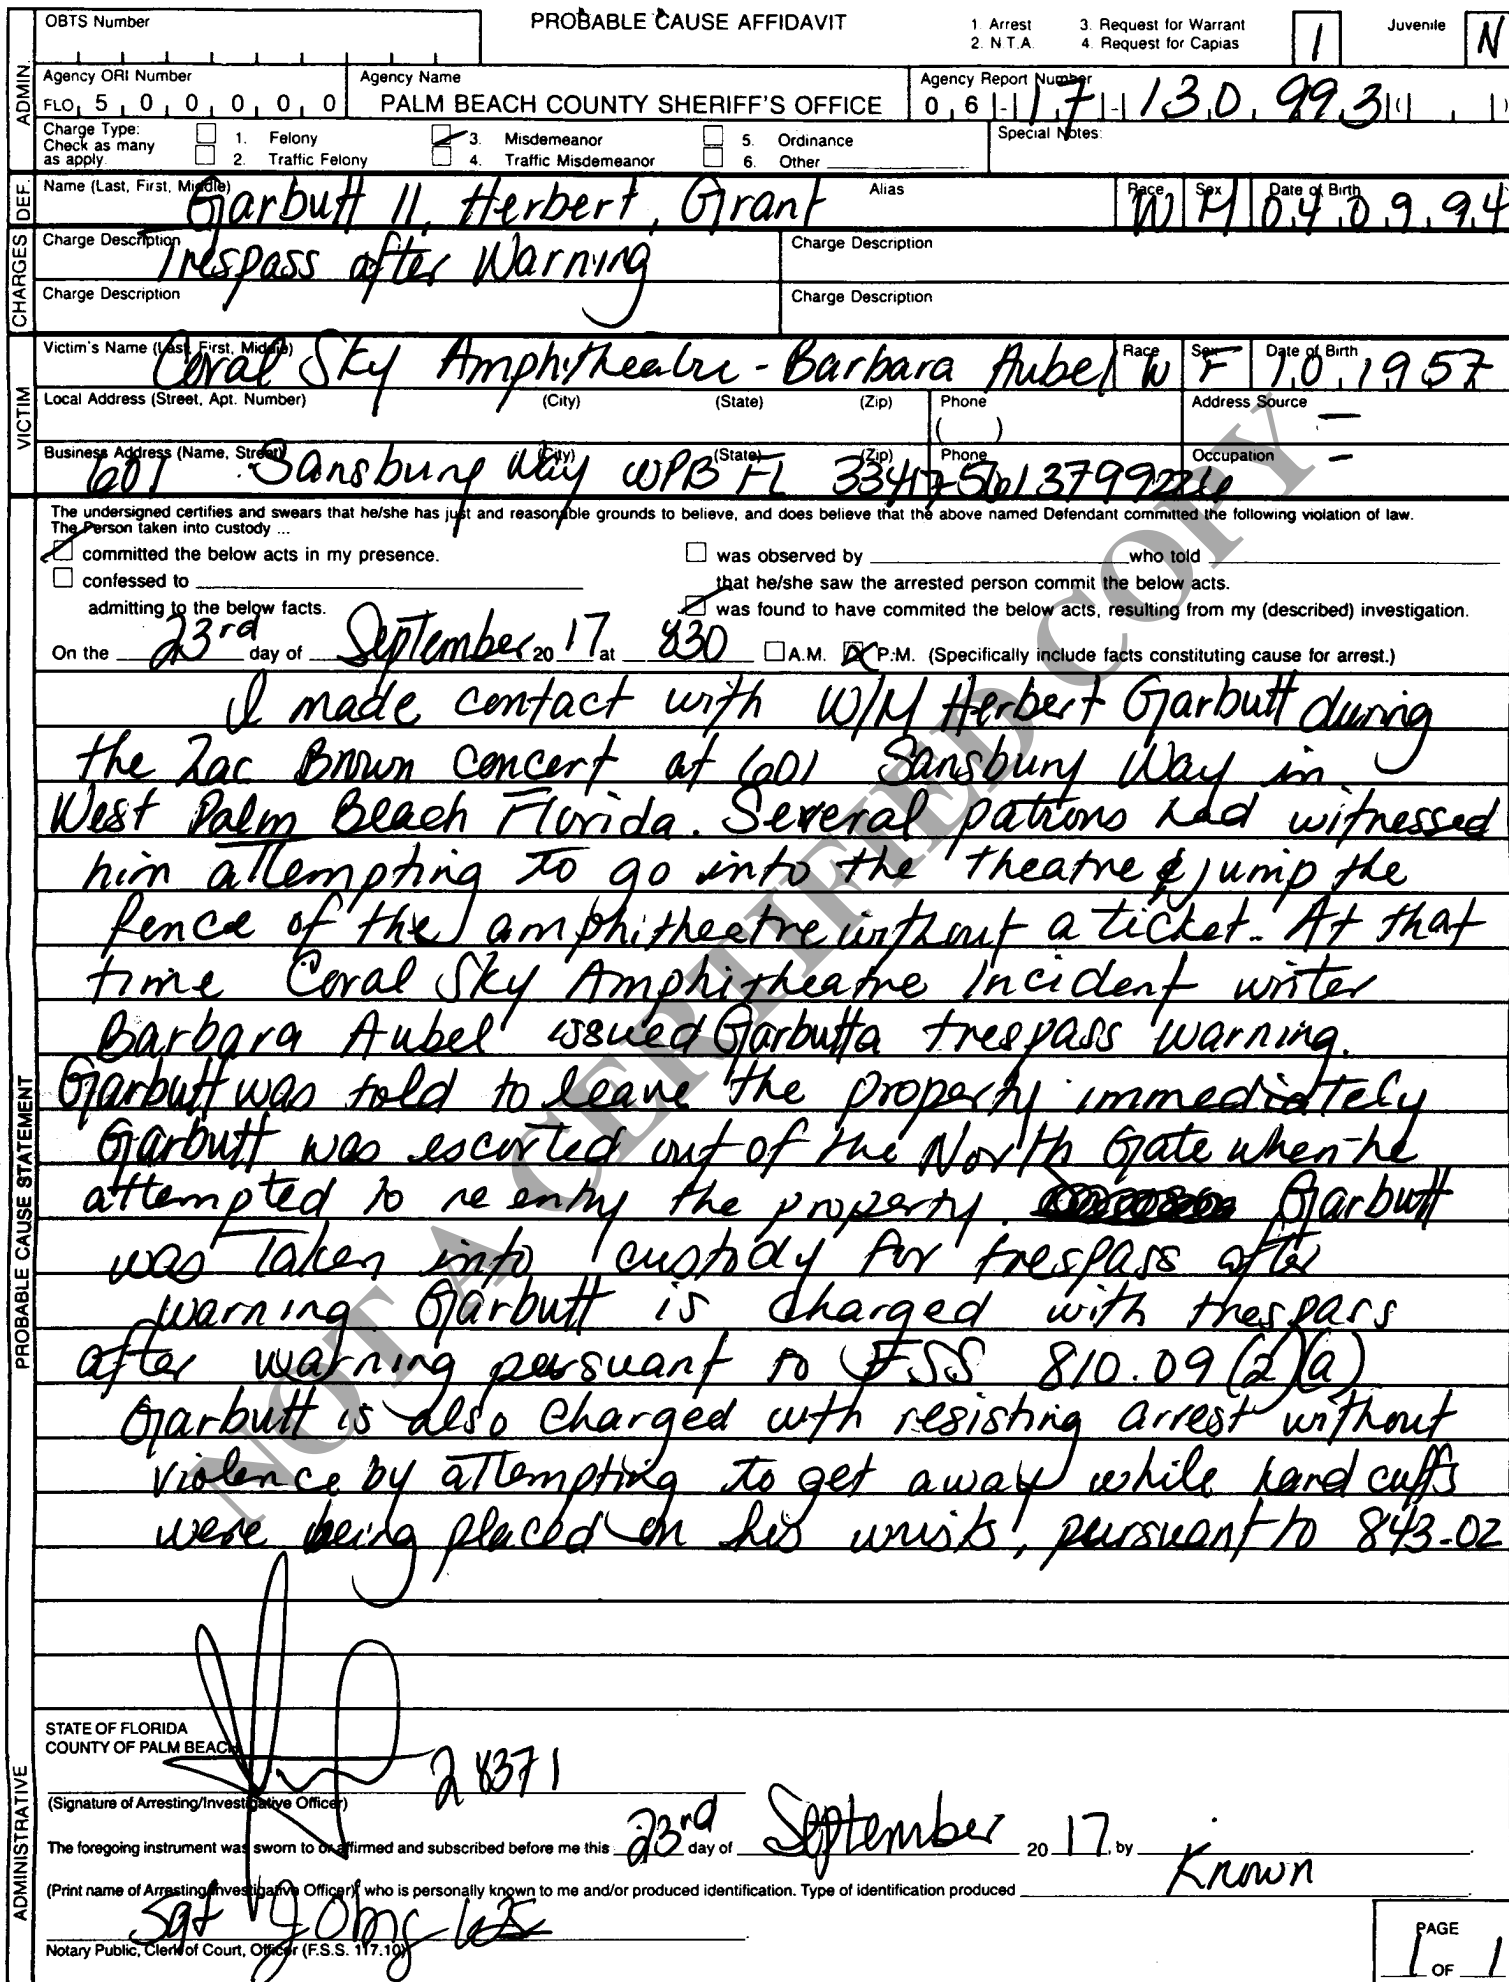 OBTS Number
PROBABLE CAUSE AFFIDAVIT
1. Arrest 3. Request for Warrant
2. N.T.A. 4. Request for Capias
1
Juvenile N
ADMIN.
Agency ORI Number
FLO 5 0 0 0 0 0 0
Agency Name
PALM BEACH COUNTY SHERIFF'S OFFICE
Agency Report Number
0 6 - 17 - 130993
Charge Type:
Check as many
as apply.
1. Felony 3. Misdemeanor 5. Ordinance
2. Traffic Felony 4. Traffic Misdemeanor 6. Other
Special Notes:
DEF.
Name (Last, First, Middle) Alias Race Sex Date of Birth
Garbutt II, Herbert, Grant W M 04 09 94
CHARGES
Charge Description Charge Description
Trespass after Warning
Charge Description Charge Description
VICTIM
Victim's Name (Last, First, Middle) Race Sex Date of Birth
Coral Sky Amphitheatre - Barbara Aubel W F 10 1957
Local Address (Street, Apt. Number) (City) (State) (Zip) Phone Address Source
( ) —
Business Address (Name, Street) (City) (State) (Zip) Phone Occupation
601 Sansbury Way WPB FL 33417 —
The undersigned certifies and swears that he/she has just and reasonable grounds to believe, and does believe that the above named Defendant committed the following violation of law.
The Person taken into custody ...
committed the below acts in my presence.
was observed by who told
confessed to
that he/she saw the arrested person commit the below acts.
admitting to the below facts.
was found to have commited the below acts, resulting from my (described) investigation.
On the 23rd day of September 20 17 at 830 A.M. X P.M. (Specifically include facts constituting cause for arrest.)
PROBABLE CAUSE STATEMENT
I made contact with W/M Herbert Garbutt during
the Zac Brown concert at 601 Sansbury Way in
West Palm Beach Florida. Several patrons had witnessed
him attempting to go into the theatre & jump the
fence of the amphitheatre without a ticket. At that
time Coral Sky Amphitheatre Incident writer
Barbara Aubel issued Garbutt a trespass warning.
Garbutt was told to leave the property immediately
Garbutt was escorted out of the North Gate when he
attempted to re entry the property. Garbutt
was Taken into custody for trespass after
warning. Garbutt is charged with trespass
after warning pursuant to FSS 810.09 (2)(a)
Garbutt is also charged with resisting arrest without
violence by attempting to get away while hand cuffs
were being placed on his wrists, pursuant to 843-02
NOT A CERTIFIED COPY
ADMINISTRATIVE
STATE OF FLORIDA
COUNTY OF PALM BEACH
28371
(Signature of Arresting/Investigative Officer)
The foregoing instrument was sworn to or affirmed and subscribed before me this 23rd day of September 20 17, by
(Print name of Arresting/Investigative Officer), who is personally known to me and/or produced identification. Type of identification produced Known
Sgt
Notary Public, Clerk of Court, Officer (F.S.S. 117.10)
PAGE
1 OF 1